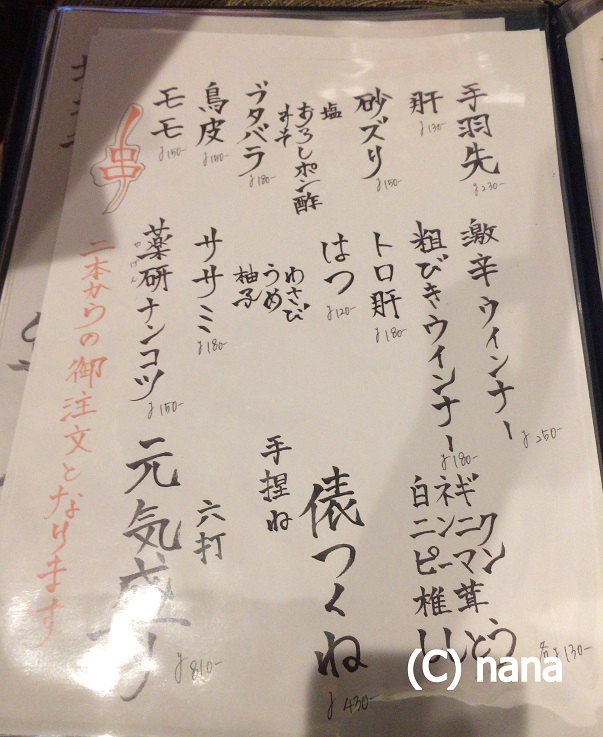 串
二本からの御注文となります
モモ
¥150-
鳥皮
¥150-
ブタバラ
¥180-
塩
おろしポン酢
砂ズリ
¥150-
肝
¥130-
手羽先
¥230-
薬研ナンコツ
やげん
¥150-
ササミ
¥180-
わさび
うめ
柚子
はつ
¥120-
トロ肝
¥180-
粗びきウインナー
¥180-
激辛ウインナー
¥250-
元気盛り
六打
¥810-
手捏ね
俵つくね
¥430-
白ネギ
ニンニク
ピーマン
椎茸
ししとう
各¥130-
(C) nana